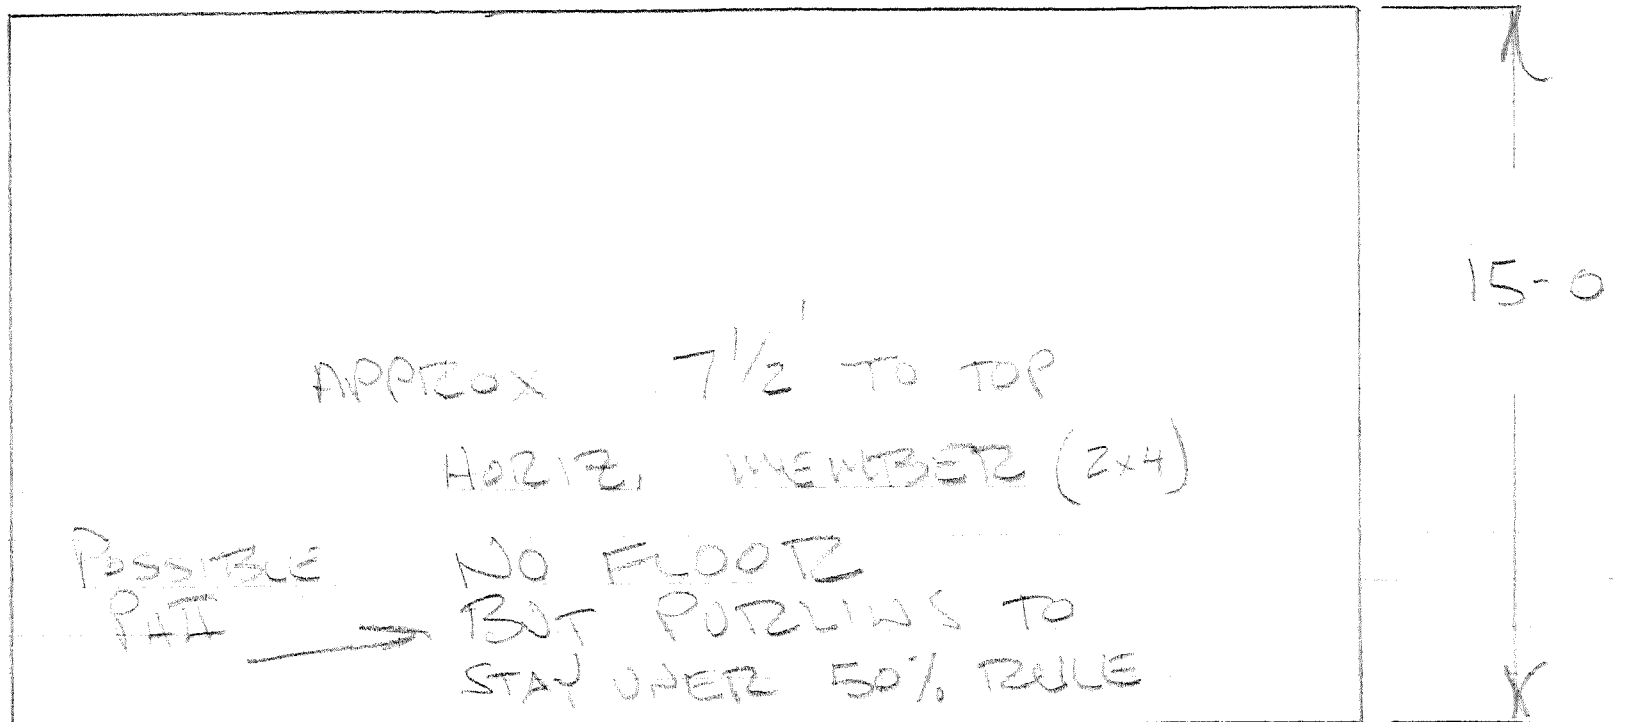 15-0
APPROX 7 1/2' TO TOP
HORIZ. MEMBER (2x4)
POSSIBLE NO FLOOR
BUT PURLINS TO
STAY UNER 50% RULE